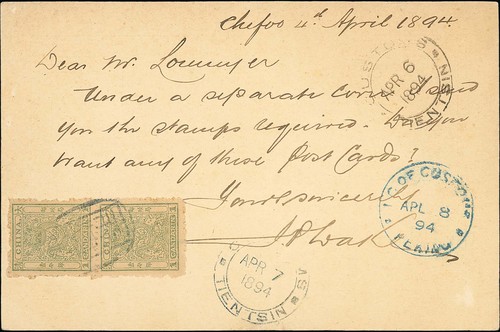 Chefoo 4th April 1894.
Dear Mr.
Under a separate cover I send
you the stamps required. Do you
want any of these Post Cards?
Yours sincerely
CUSTOMS
APR 6
1894
TIENTSIN
I.G. OF CUSTOMS
APL 8
94
PEKING
CHINA
CHINA
CUSTOMS
APR 7
1894
TIENTSIN